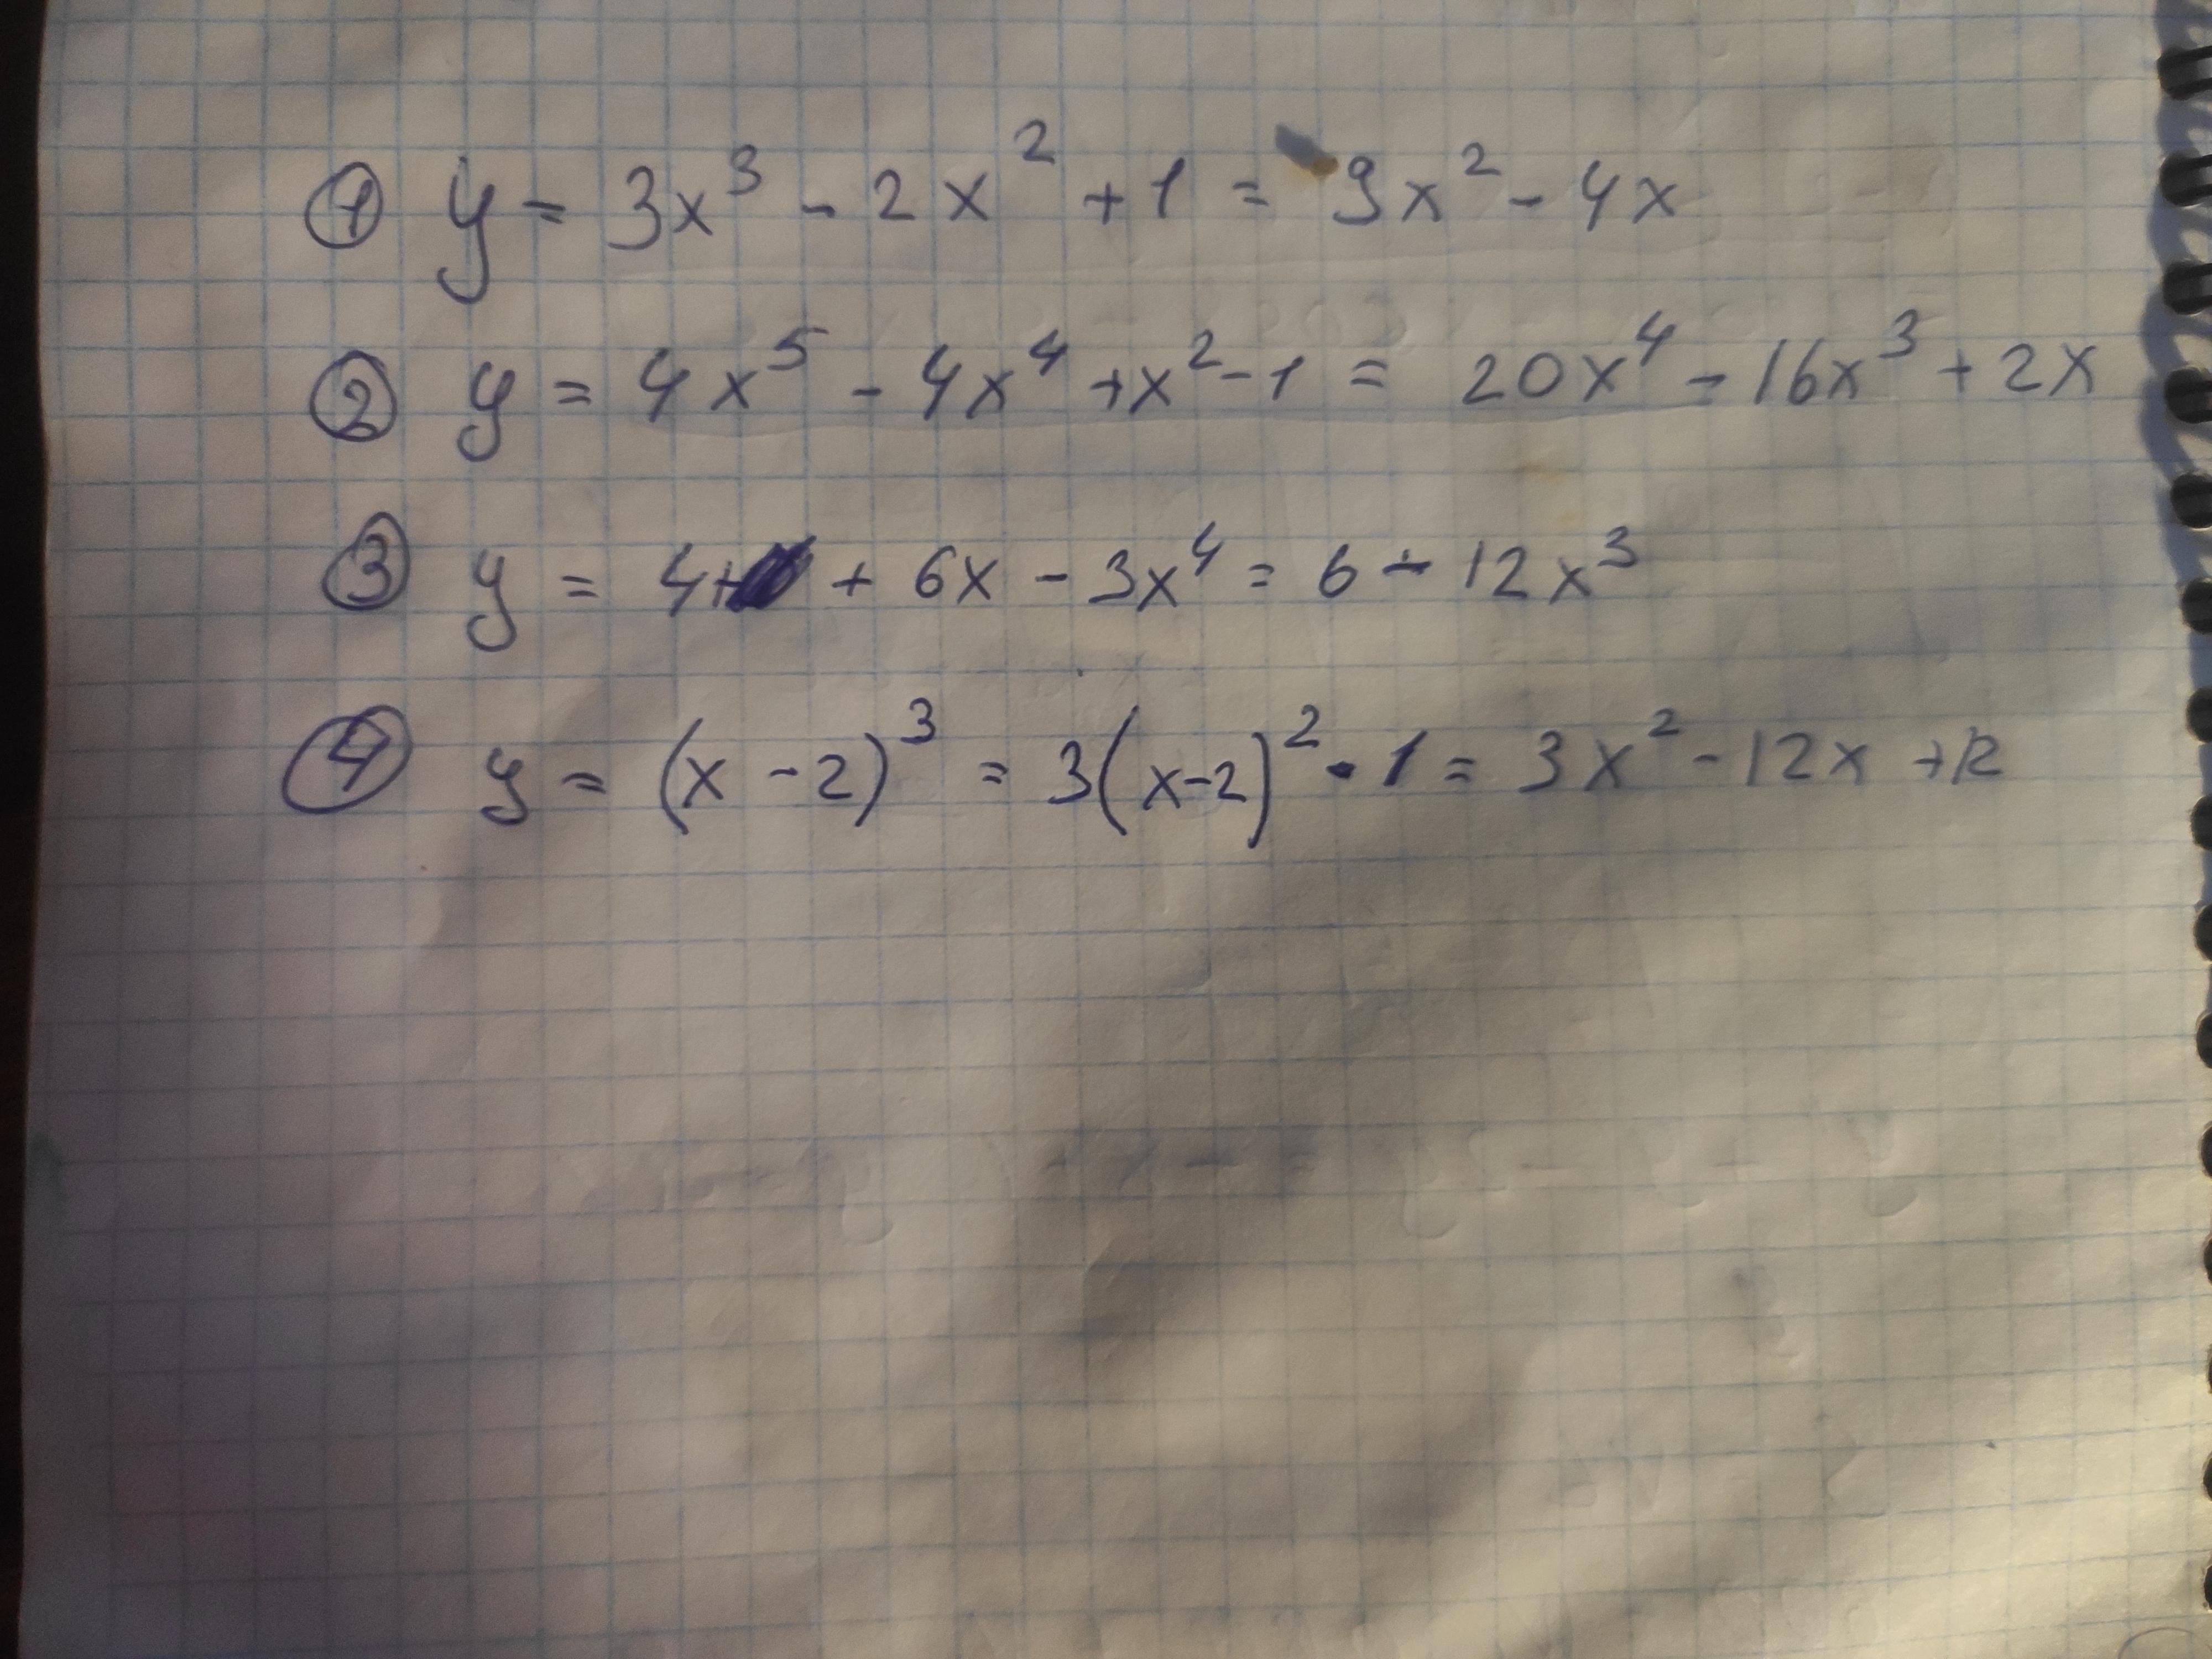 ① y = 3x³ - 2x² + 1 = 9x² - 4x
② y = 4x⁵ - 4x⁴ + x² - 1 = 20x⁴ - 16x³ + 2x
③ y = 4 + + 6x - 3x⁴ = 6 - 12x³
④ y = (x - 2)³ = 3(x-2)² · 1 = 3x² - 12x + 12